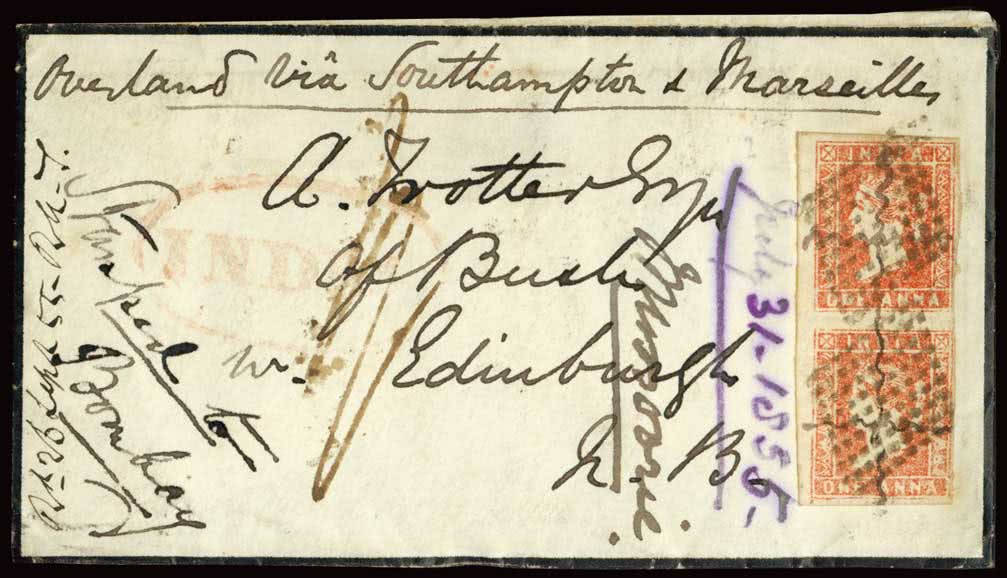 Overland viâ Southampton & Marseilles
A. Trotter Esqr
of Bush
Edinburgh
N. B.
W.
Stamped to
Bombay
Rd. 26 Sept. 55 - R.A.T.
Mussoorie.
July 31. 1855.
INDIA
INDIA
ONE ANNA
INDIA
ONE ANNA